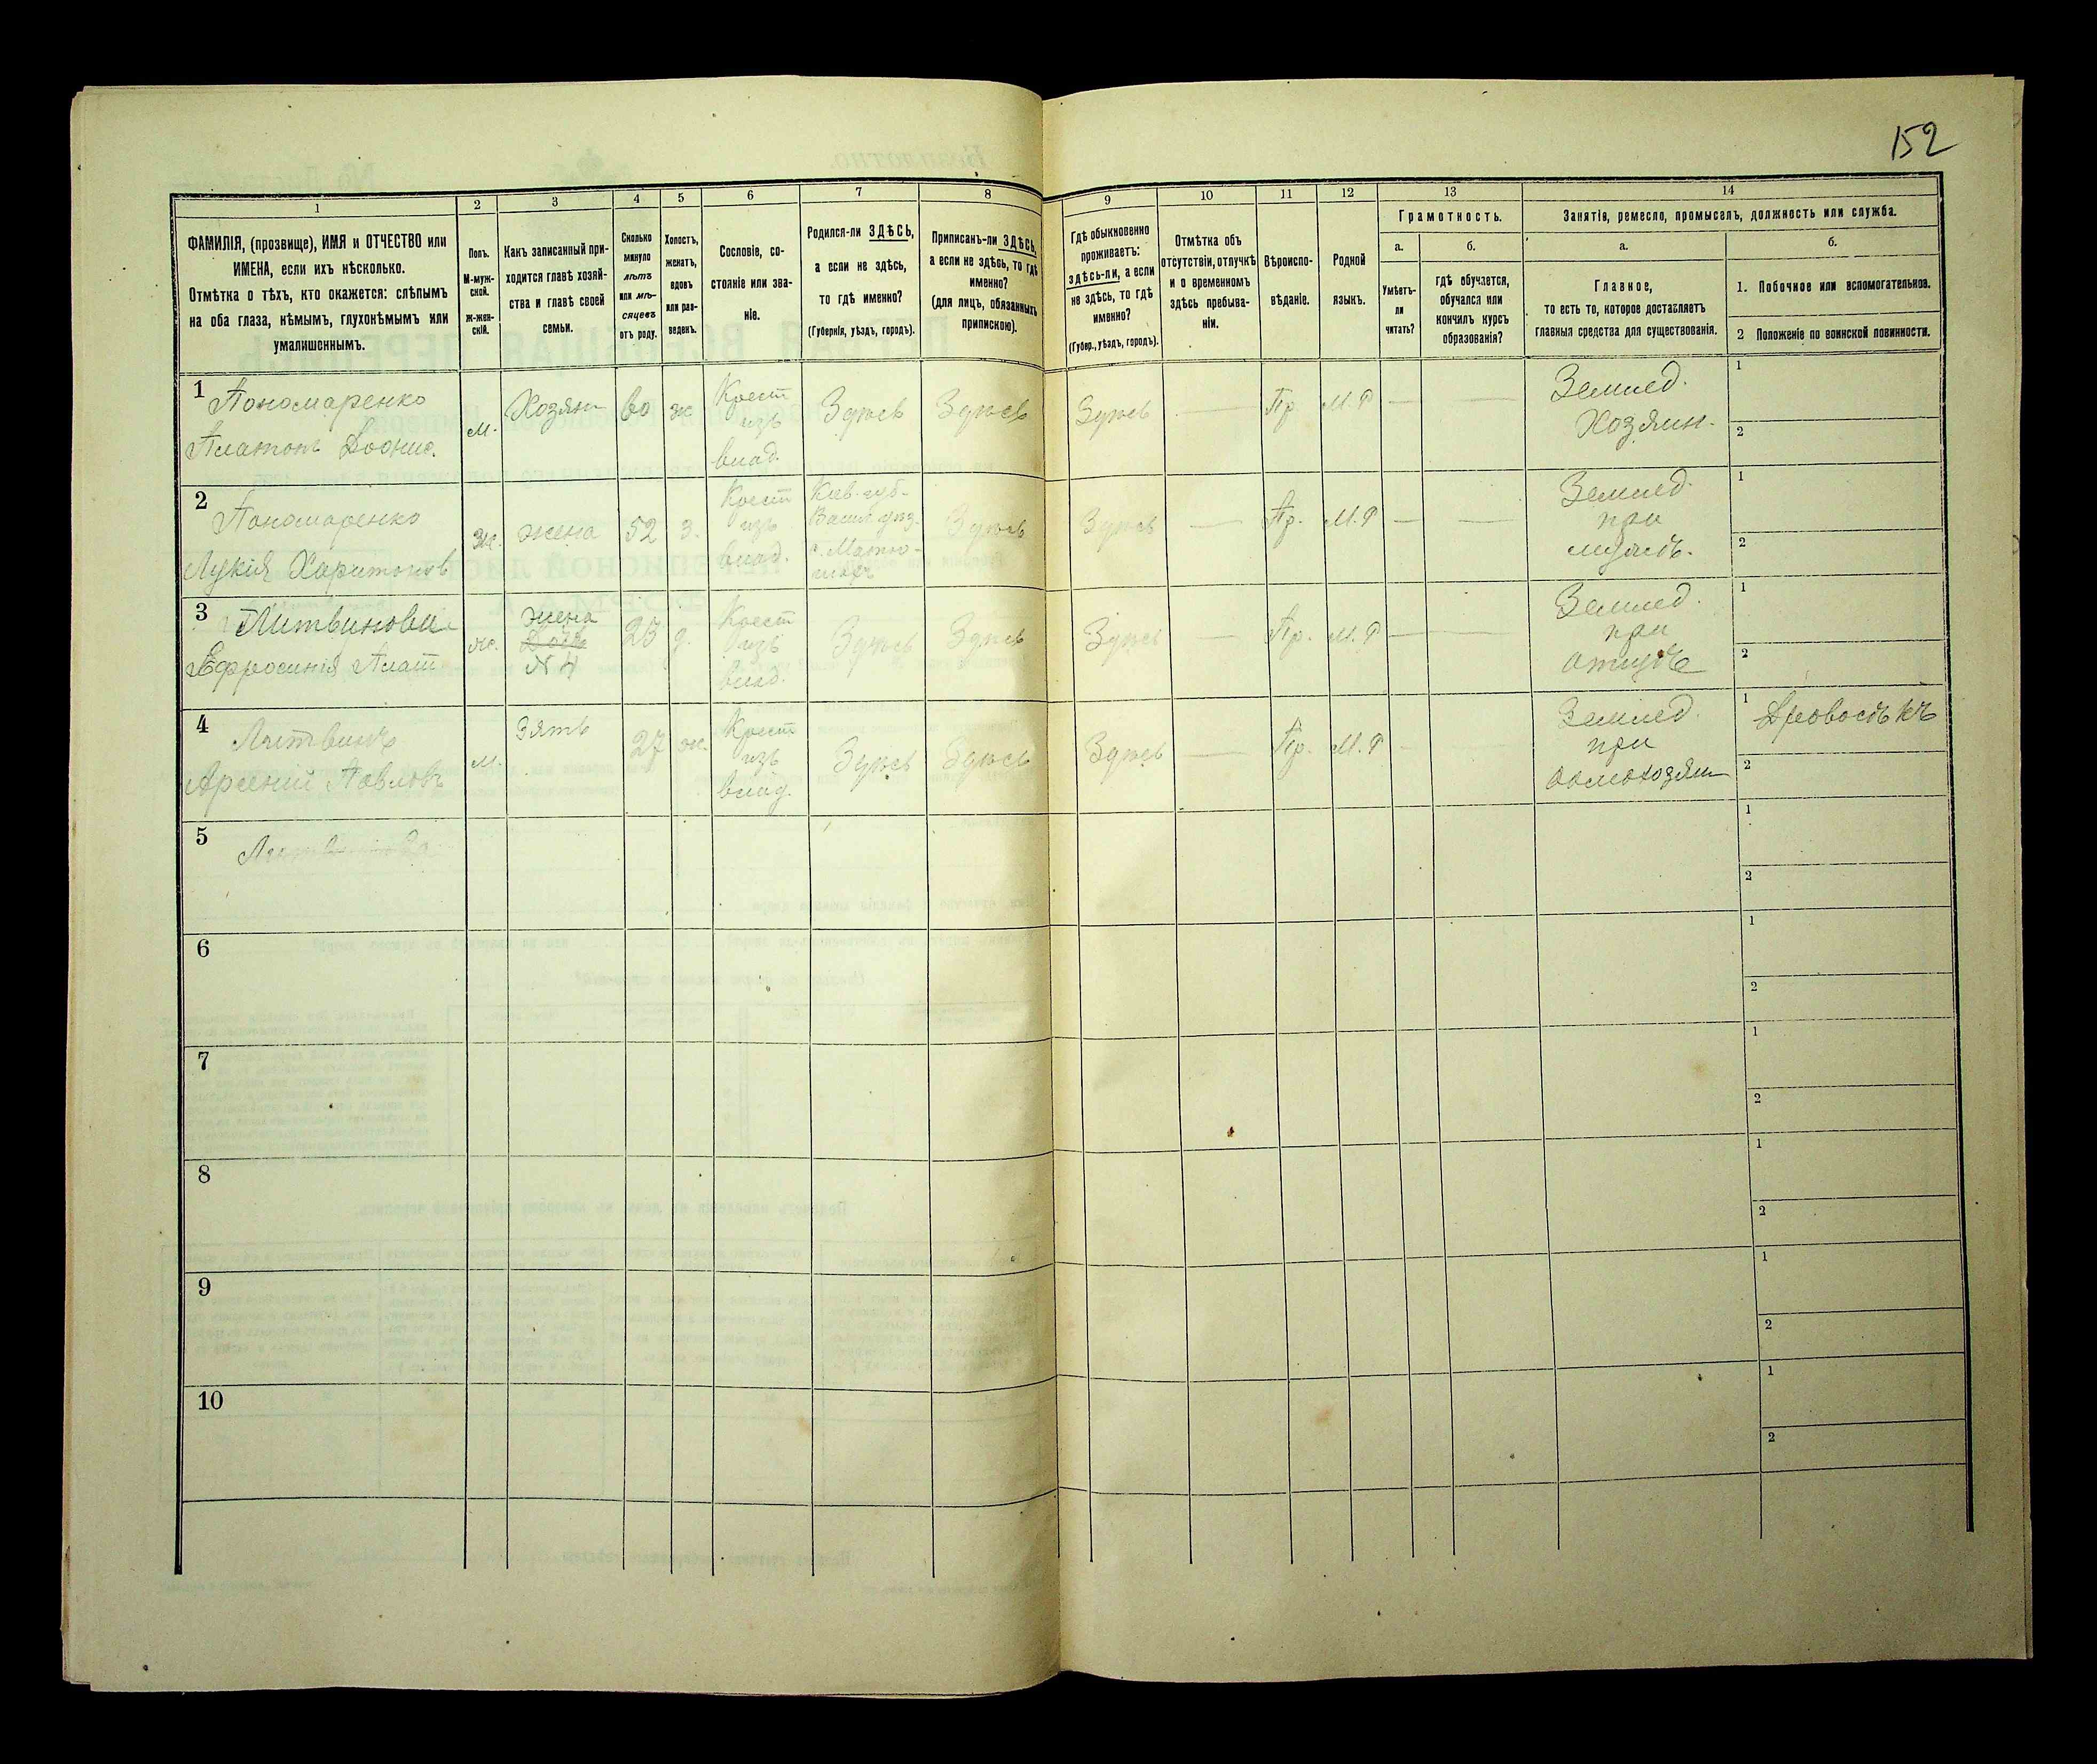 152
1
2
3
4
5
6
7
8
9
10
11
12
13
14
ФАМИЛІЯ, (прозвище), ИМЯ и ОТЧЕСТВО или
ИМЕНА, если ихъ нѣсколько.
Отмѣтка о тѣхъ, кто окажется: слѣпымъ
на оба глаза, нѣмымъ, глухонѣмымъ или
умалишеннымъ.
Полъ.
М-муж-
ской.
Ж-жен-
скій.
Какъ записанный при-
ходится главѣ хозяй-
ства и главѣ своей
семьи.
Сколько
минуло
лѣтъ
или мѣ-
сяцевъ
отъ роду.
Холостъ,
женатъ,
вдовъ
или раз-
веденъ.
Сословіе, со-
стояніе или зва-
ніе.
Родился-ли ЗДѢСЬ,
а если не здѣсь,
то гдѣ именно?
(Губернія, уѣздъ, городъ).
Приписанъ-ли ЗДѢСЬ,
а если не здѣсь, то гдѣ
именно?
(для лицъ, обязанныхъ
припискою).
Гдѣ обыкновенно
проживаетъ:
здѣсь-ли, а если
не здѣсь, то гдѣ
именно?
(Губер., уѣздъ, городъ).
Отмѣтка объ
отсутствіи, отлучкѣ
и о временномъ
здѣсь пребыва-
ніи.
Вѣроиспо-
вѣданіе.
Родной
языкъ.
Грамотность.
а.
Умѣетъ-
ли
читать?
б.
гдѣ обучается,
обучался или
кончилъ курсъ
образованія?
Занятія, ремесло, промыселъ, должность или служба.
а.
Главное,
то есть то, которое доставляетъ
главныя средства для существованія.
б.
1. Побочное или вспомогательное.
2 Положеніе по воинской повинности.
1
Пономаренко
Платонъ
м.
Хозяин
60
ж
Крест
изъ
влад.
Здѣсь
Здѣсь
Здѣсь
Пр
М.Р
Землед.
Хозяин.
1
2
2
Пономаренко
Лукія Харитонов
Ж.
жена
52
з.
Крест
изъ
влад.
Кіев. губ.
Васил. уѣз.
Здѣсь
Здѣсь
Пр.
М.Р
Землед.
при
мужѣ.
1
2
3
Ефросинія Плат
ж.
жена
Дочь
№ 4
Крест
изъ
влад.
Здѣсь
Здѣсь
Здѣсь
Пр.
М.Р
Землед.
при
отцѣ
1
2
4
Литвинъ
Арсеній Павловъ
м.
Зять
27
ж.
Крест
изъ
влад.
Здѣсь
Здѣсь
Здѣсь
Пр.
М.Р
Землед.
при
1
Дровосѣкъ
2
5
1
2
6
1
2
7
1
2
8
1
2
9
1
2
10
1
2